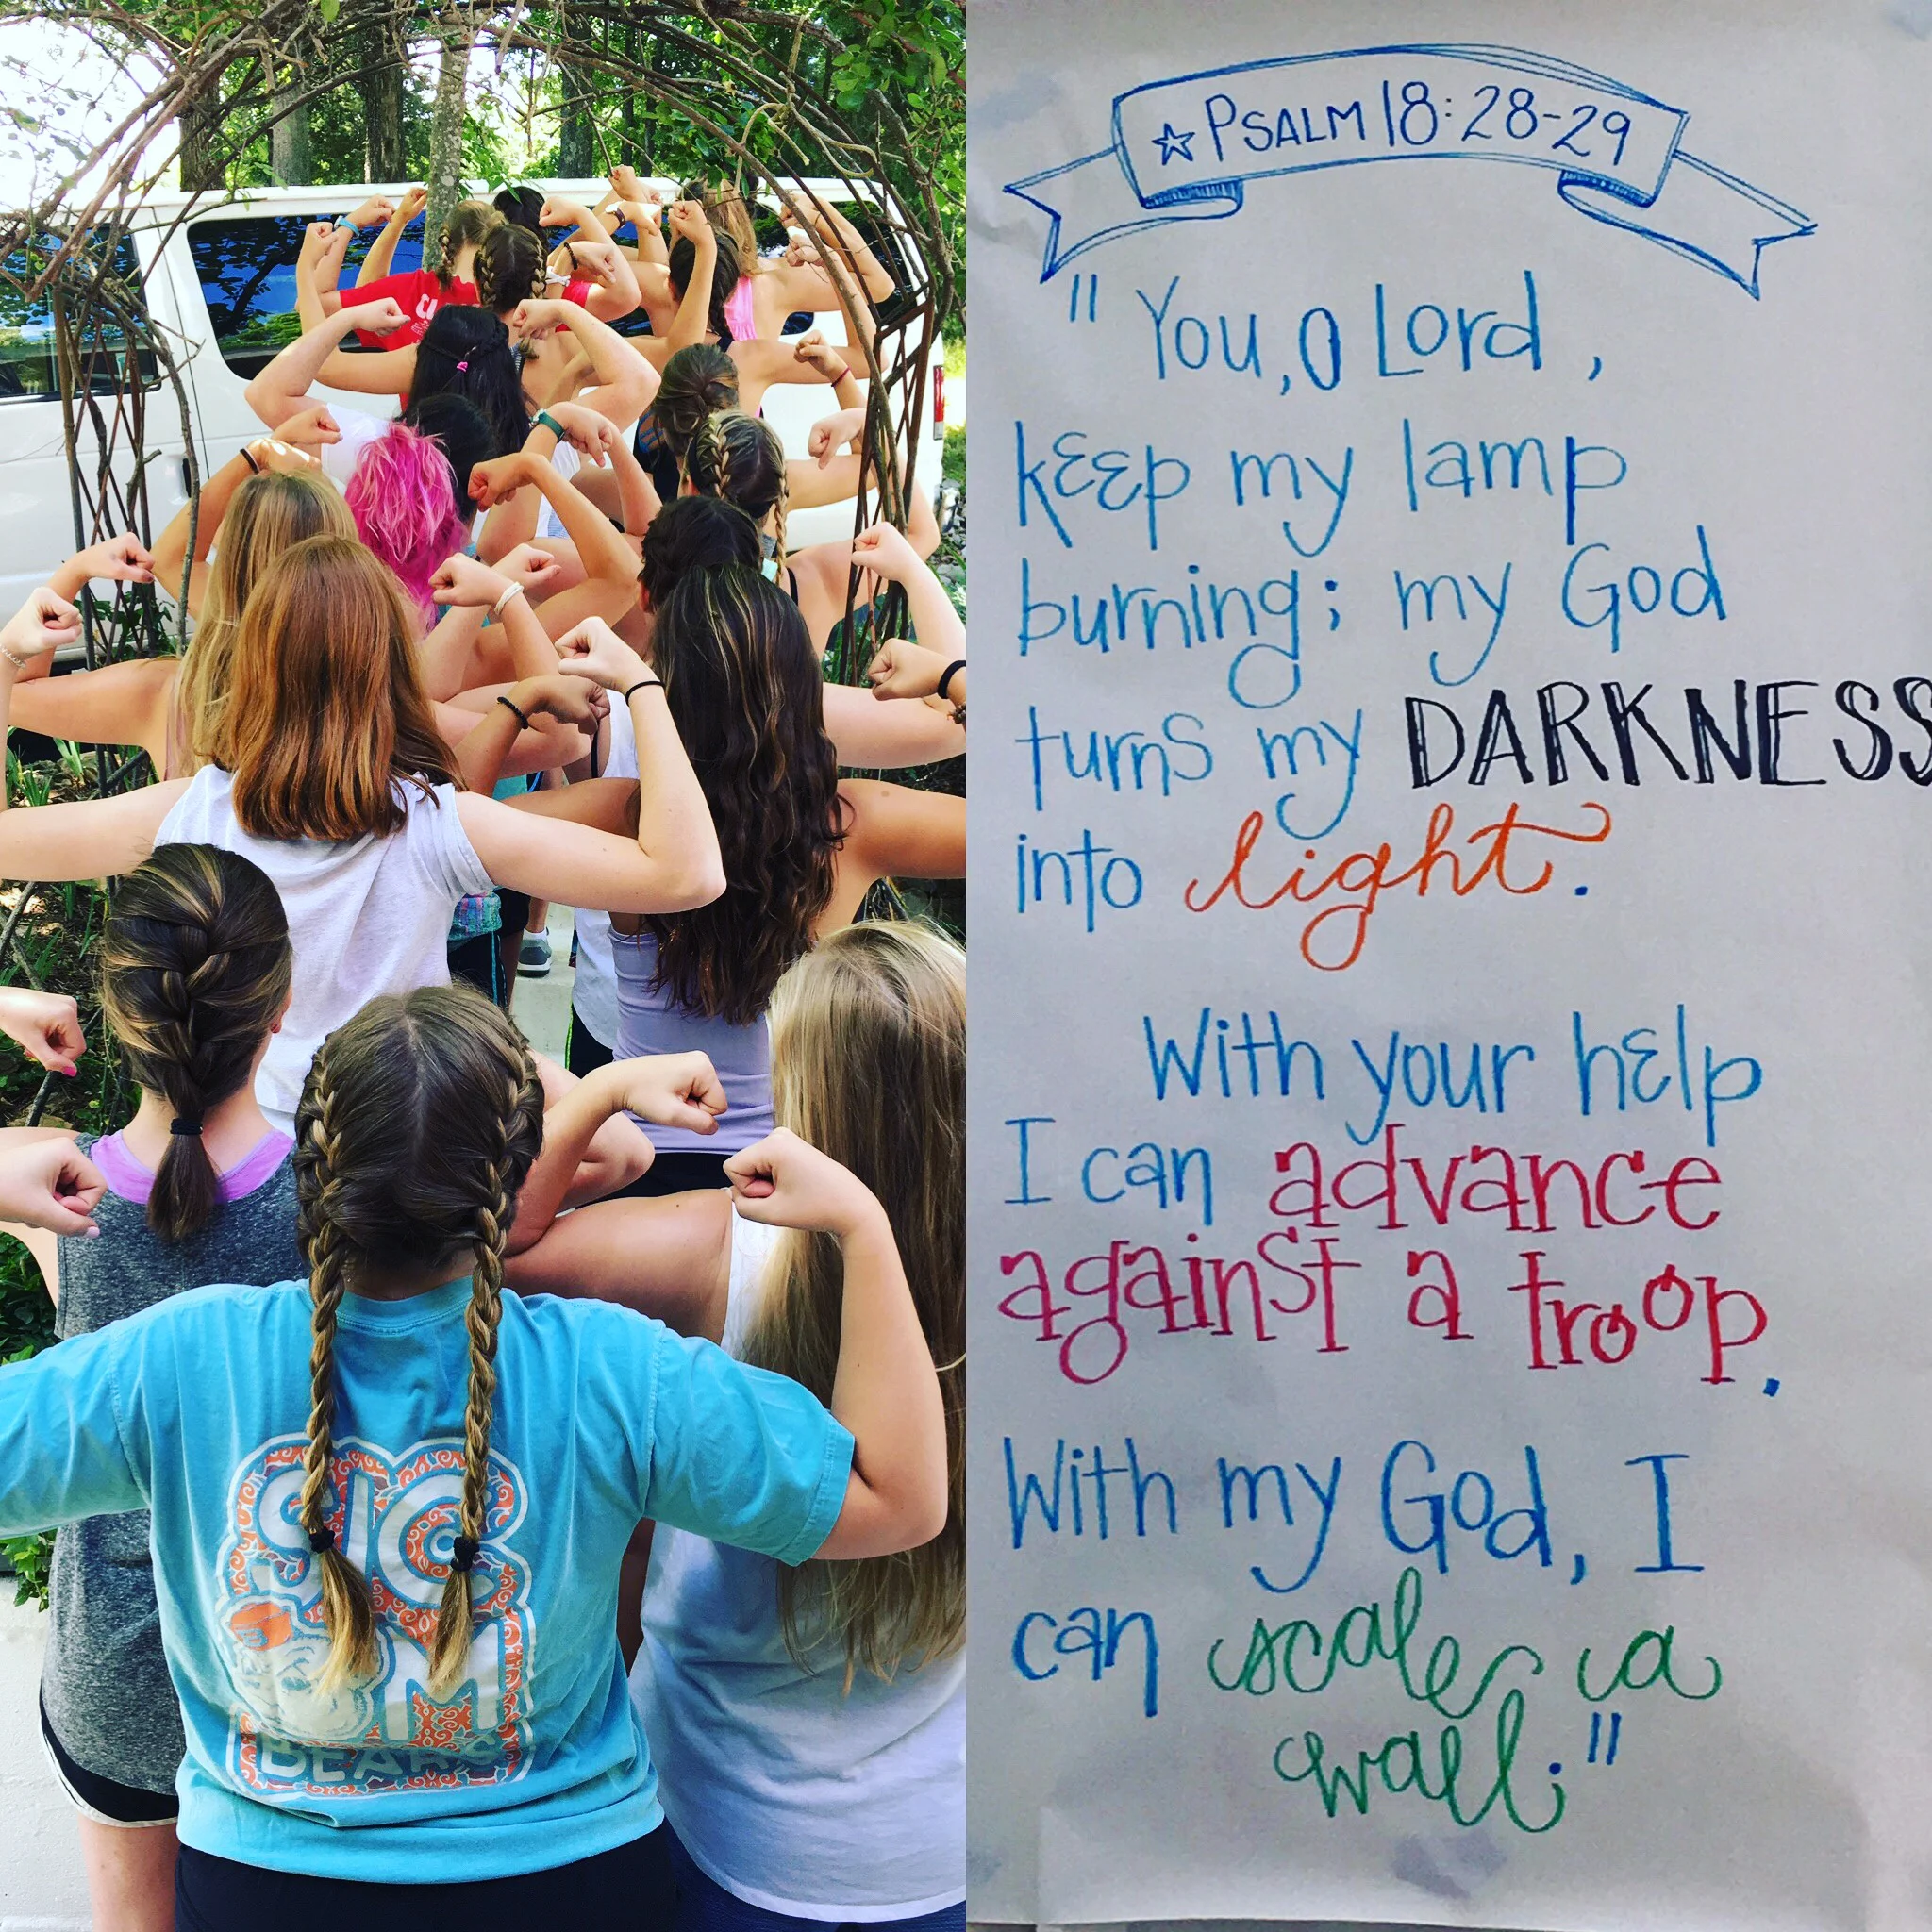 SIC
'EM
BEARS
☆ PSALM 18:28-29
"You, O Lord,
keep my lamp
burning; my God
turns my DARKNESS
into light.
With your help
I can advance
against a troop.
With my God, I
can scale a
wall."